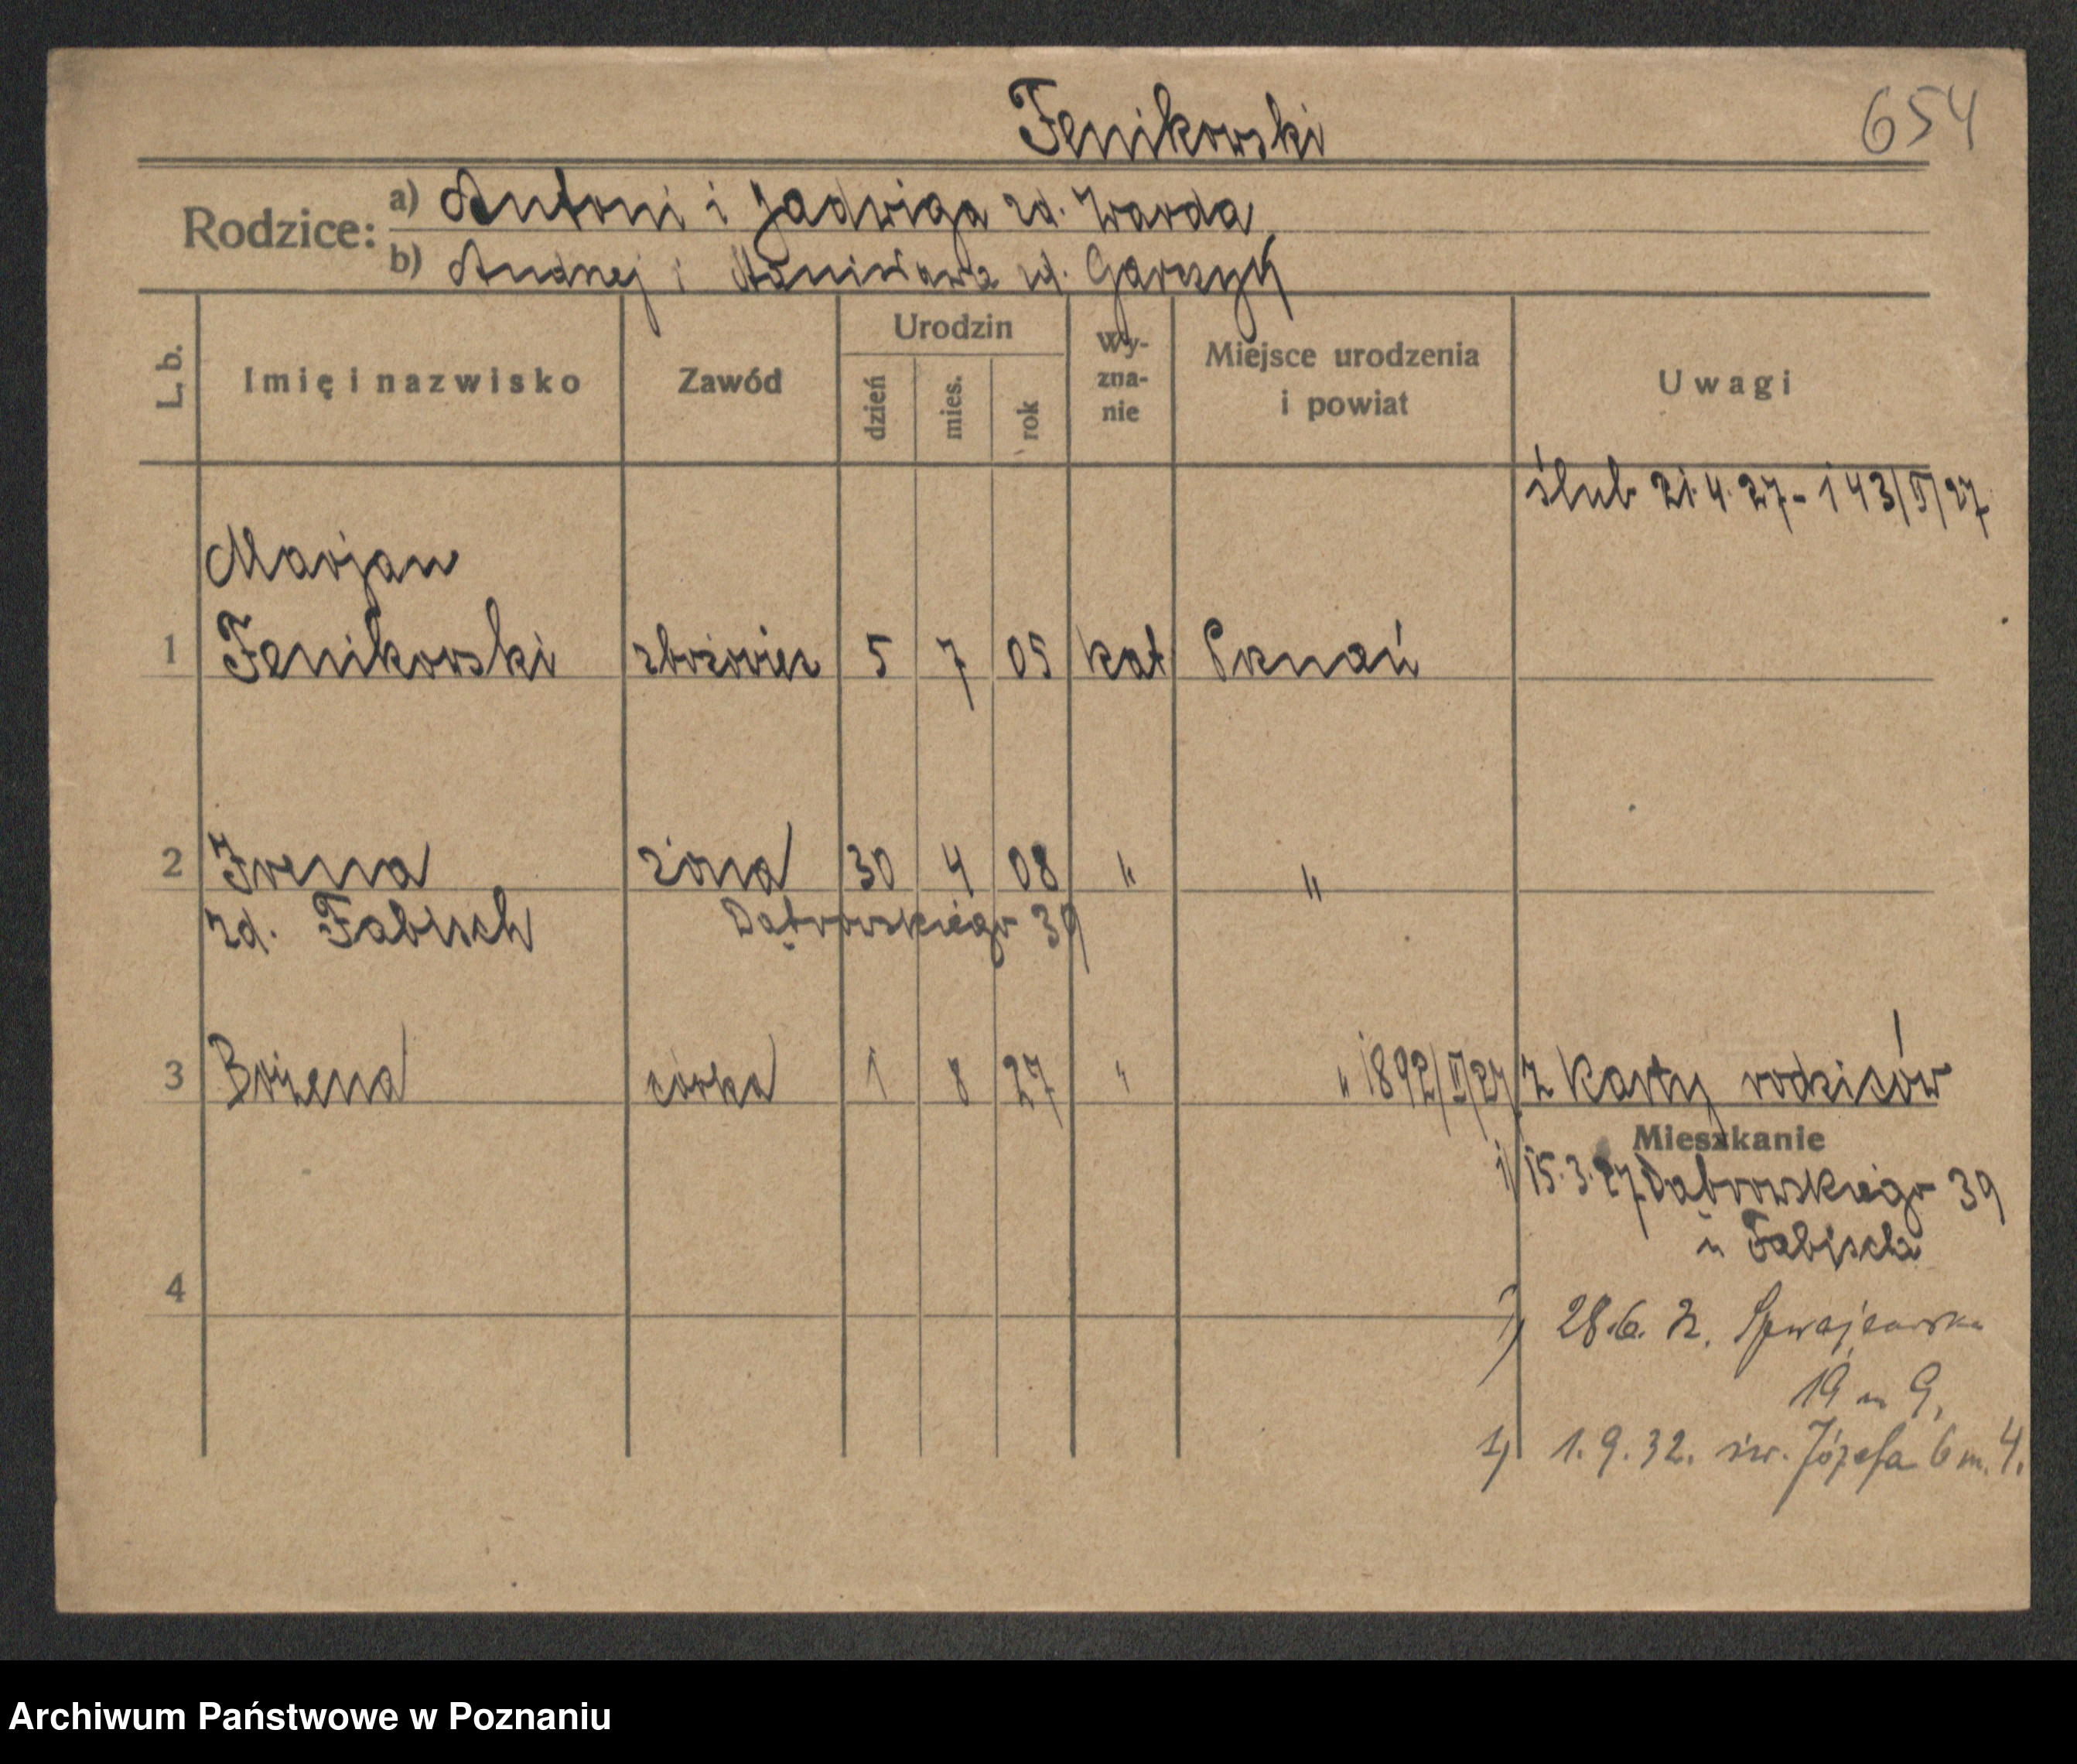 Fenikowski 654
Rodzice: a) Antoni i Jadwiga zd. Warda
b) Andrzej i Stanisława zd. Garszyń
L. b. Imię i nazwisko Zawód Urodzin dzień mies. rok Wy-zna-nie Miejsce urodzenia i powiat Uwagi
ślub 21.4.27 - 143/II/27
Marjan
1 Fenikowski zbożowiec 5 7 05 kat Poznań
2 Irena żona 30 4 08 " "
zd. Fabisch Dąbrowskiego 39
3 Bożena córka 1 8 27 " " 1892/II/27 z karty rodziców
Mieszkanie
1) 15.3.27 Dąbrowskiego 39
u Fabischa
4
28.6. 32. Szwajcarska
19 m 9,
1. 9. 32. św. Józefa 6 m. 4.
Archiwum Państwowe w Poznaniu